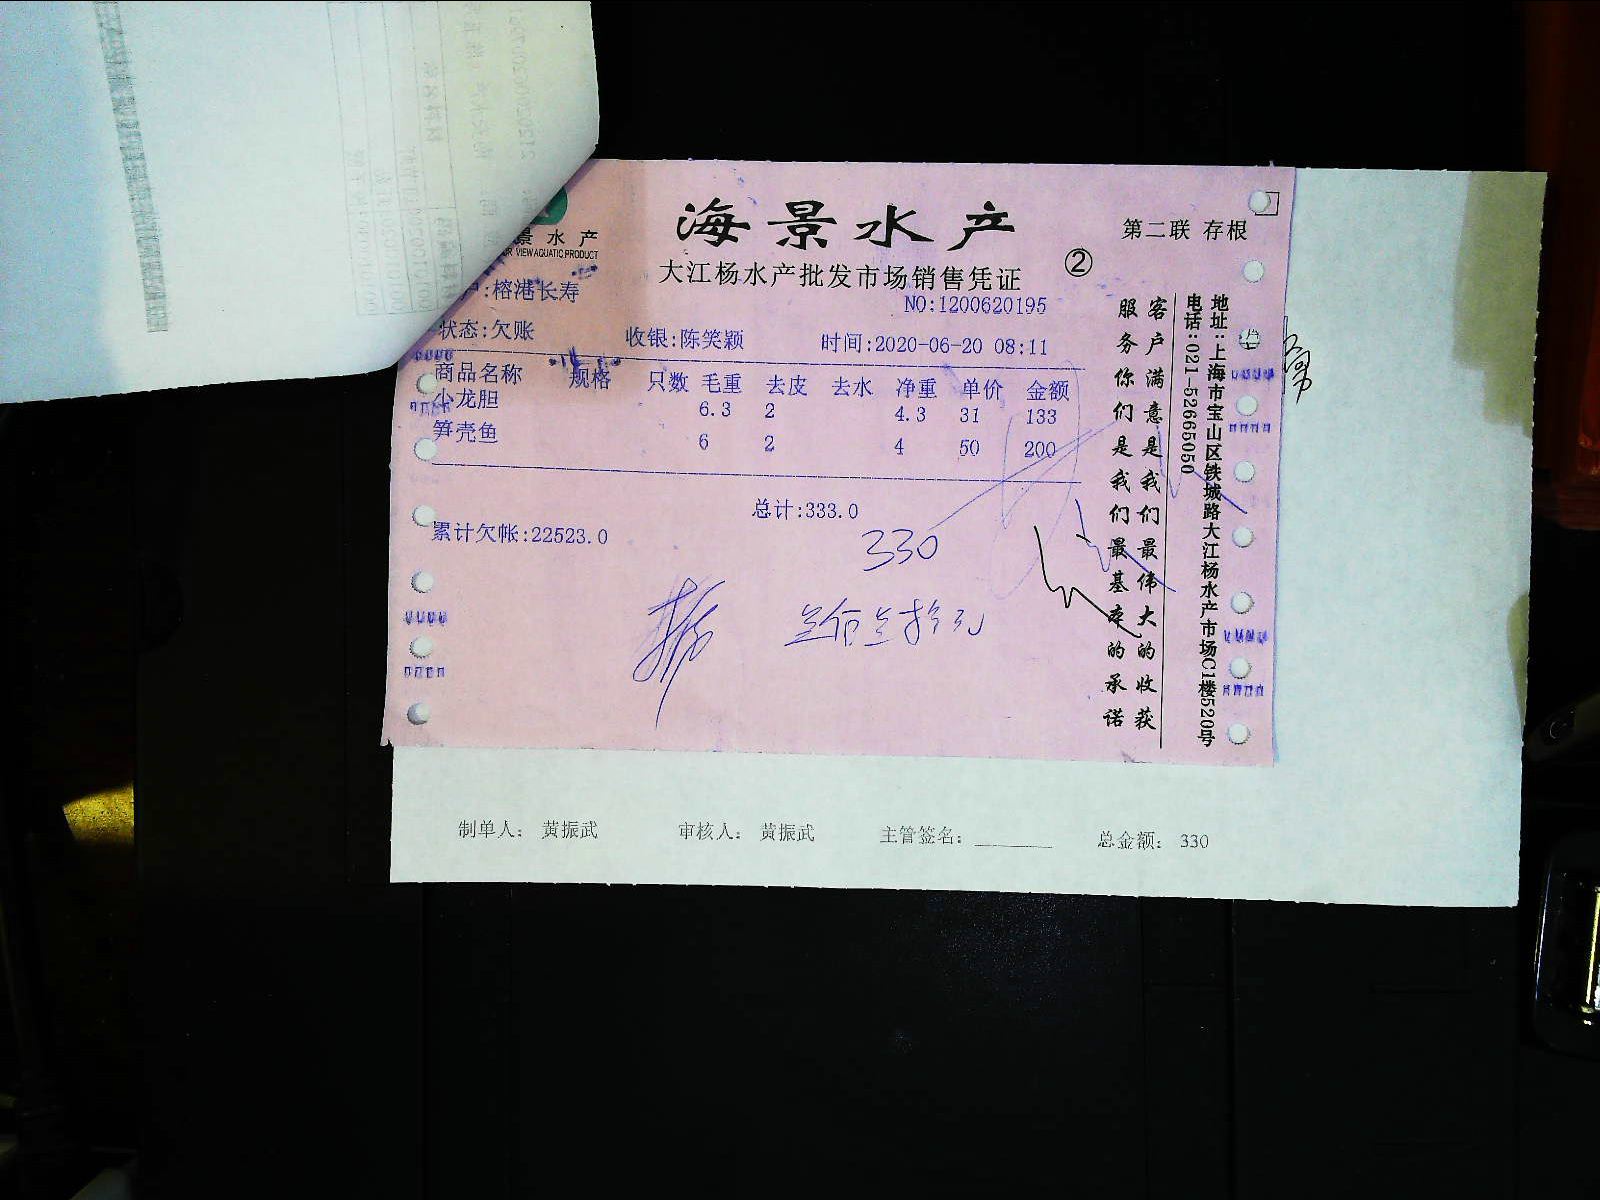 海景水产
第二联 存根
景水产
R VIEW AQUATIC PRODUCT
大江杨水产批发市场销售凭证
②
:榕港长寿
NO:1200620195
状态:欠账 收银:陈笑颖 时间:2020-06-20 08:11
商品名称 规格 只数 毛重 去皮 去水 净重 单价 金额
小龙胆 6.3 2 4.3 31 133
笋壳鱼 6 2 4 50 200
总计:333.0
累计欠帐:22523.0
330
叁佰叁拾元
客户满意是我们最伟大的收获
服务你们是我们最基本的承诺
地址:上海市宝山区铁城路大江杨水产市场C1楼520号
电话:021-52665050
制单人: 黄振武 审核人: 黄振武 主管签名:________ 总金额: 330